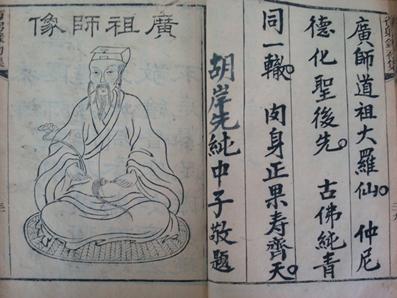 廣師道祖大羅仙。仲尼
德化聖後先。古佛純青
同一轍。肉身正果寿齊天。
胡岸先純中子敬題
廣祖師像